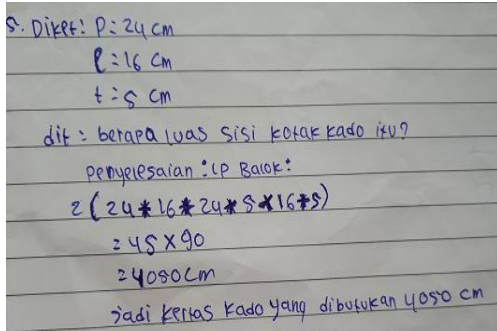 5. Diket: P = 24 cm
l = 16 cm
t = 5 cm
dit = berapa luas sisi kotak kado itu?
Penyelesaian : LP Balok :
2 (24 * 16 * 24 * 5 * 16 * 5)
= 45 x 90
= 4050 cm
Jadi kertas kado yang dibutukan 4050 cm